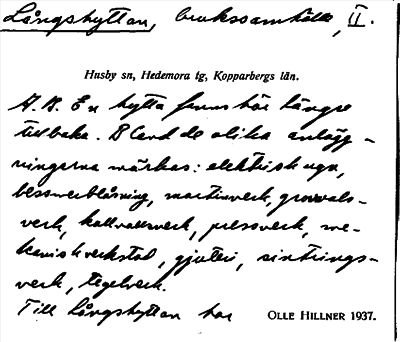 Långshyttan, brukssamhälle, II.
Husby sn, Hedemora tg, Kopparbergs län.
A.B. En hytta fanns här längre
tillbaka. Bland de olika anlägg-
ningarna märkas: elektrisk ugn,
bessemerblåsning, martinverk, grovvals-
verk, kallvalsverk, pressverk, me-
kanisk verkstad, gjuteri, sintrings-
verk, tegelverk.
Till Långshyttan har
OLLE HILLNER 1937.